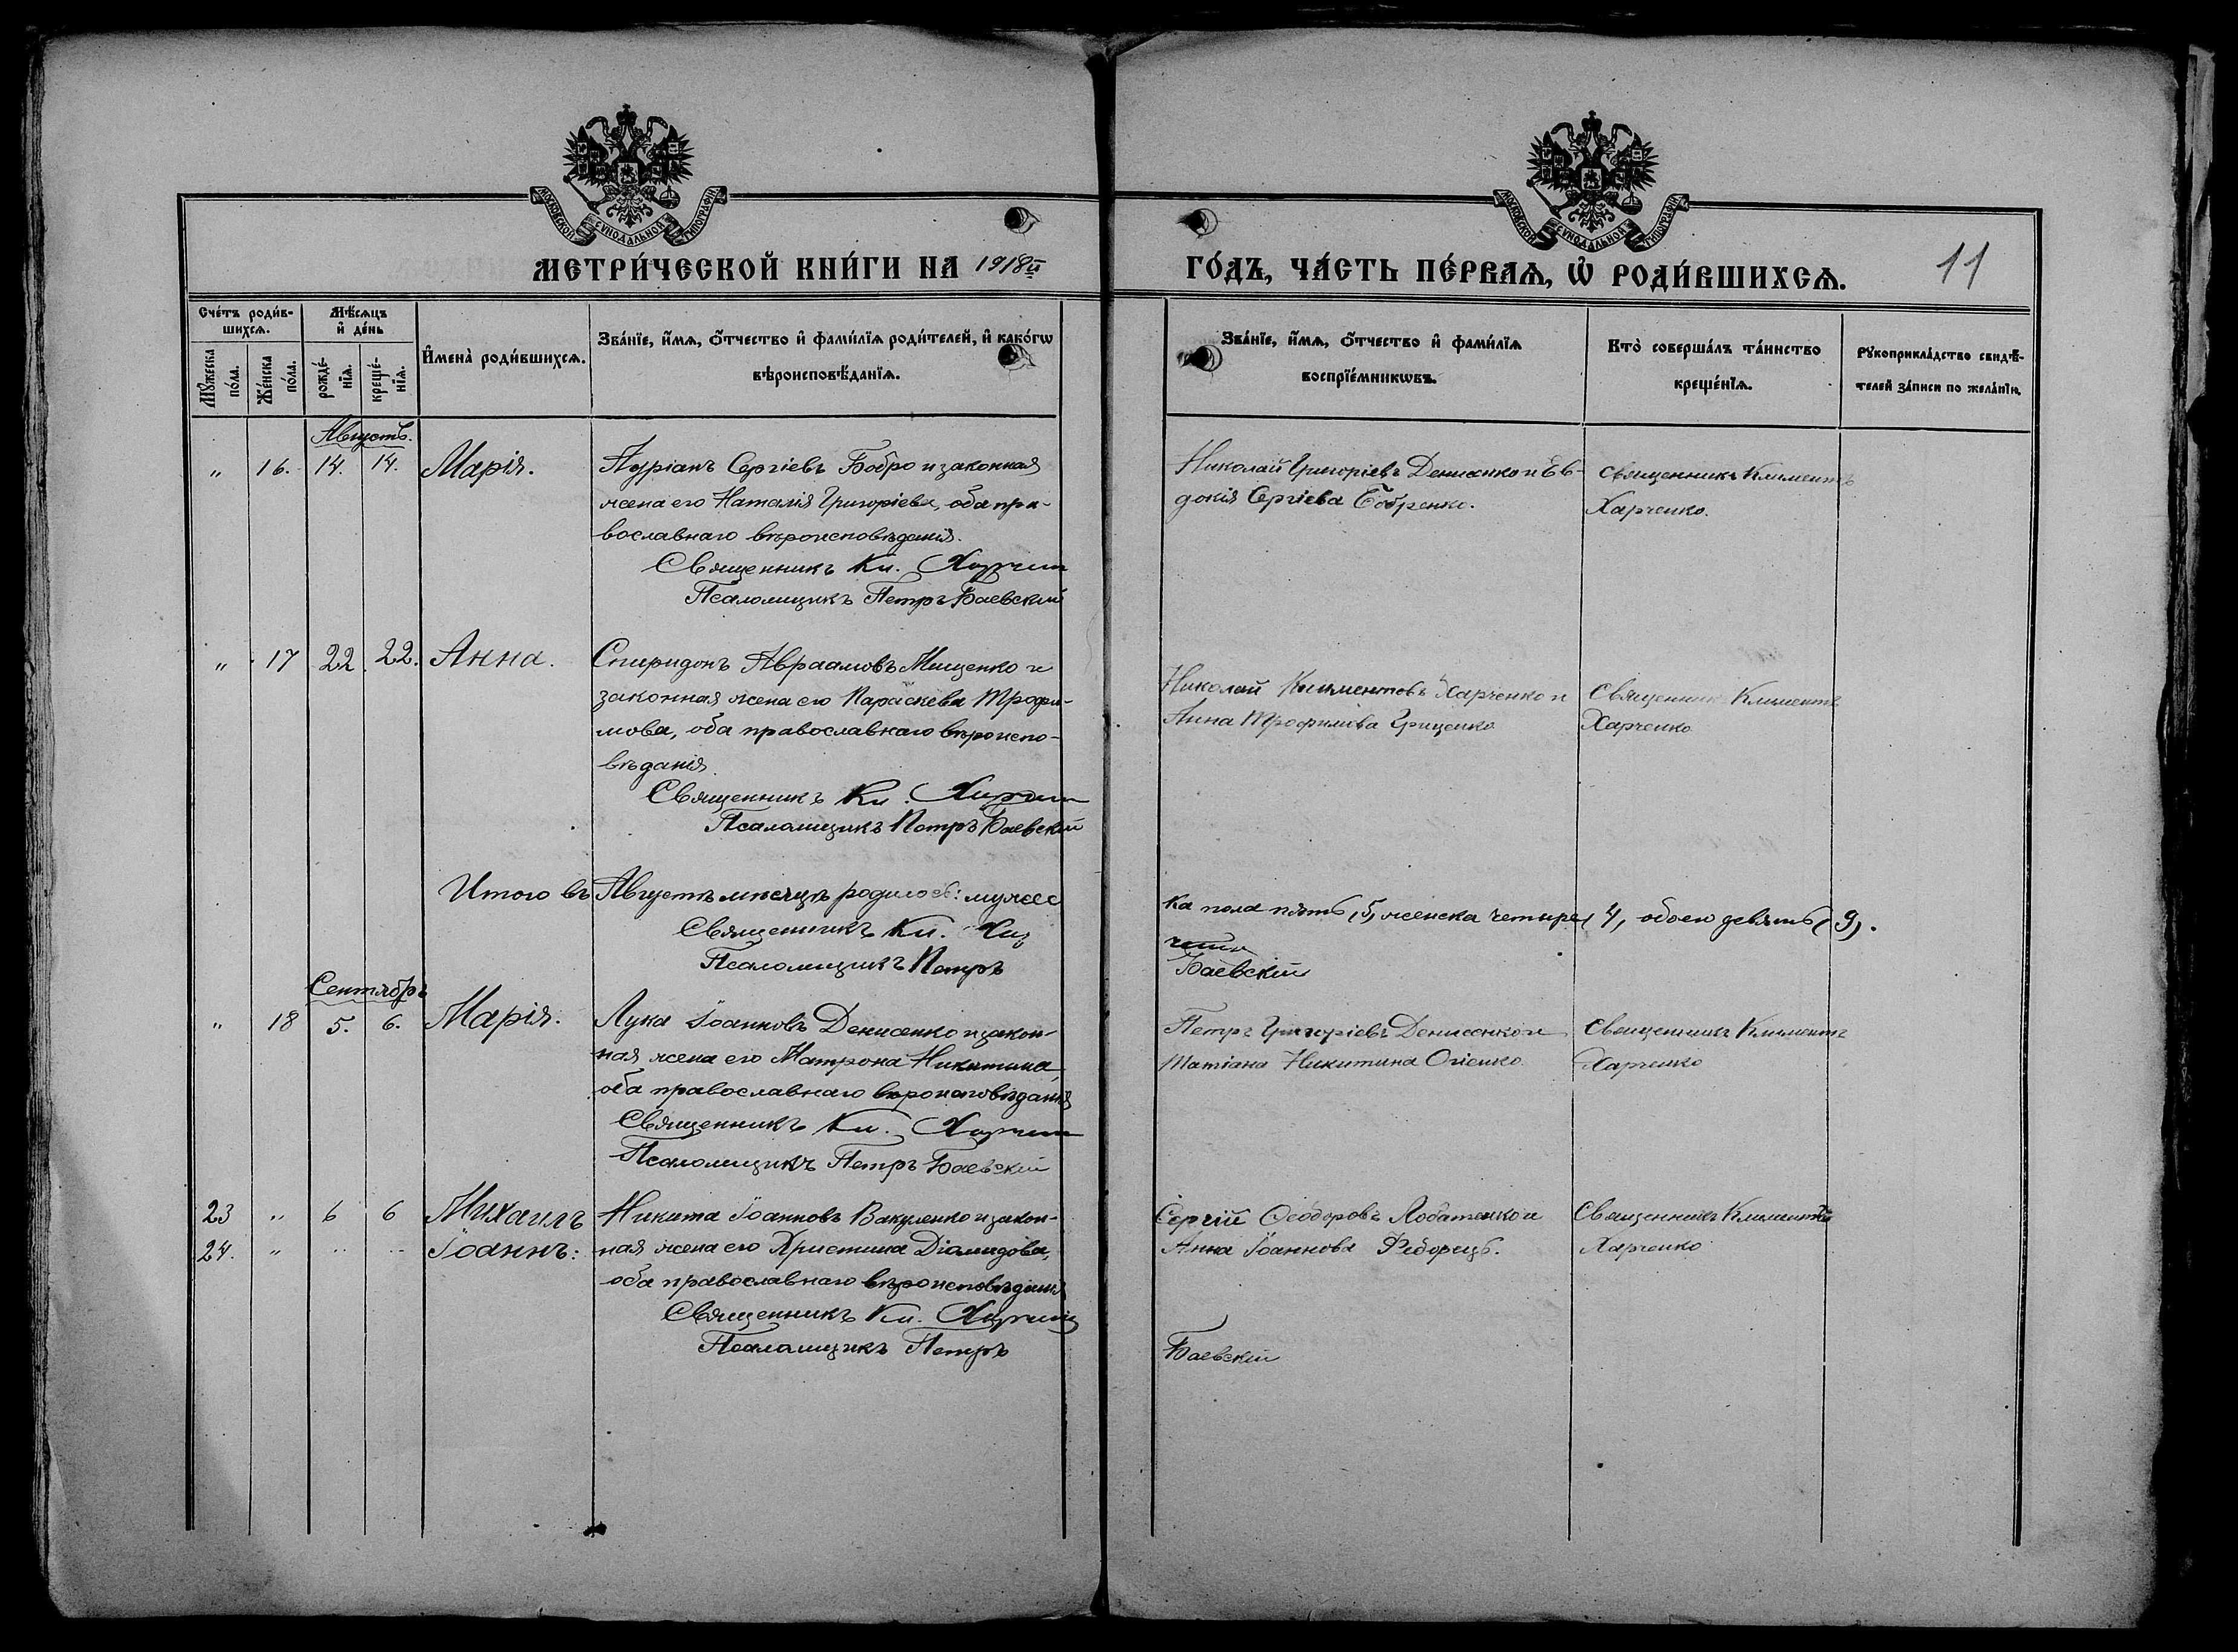 МОСКОВСКОЙ СѴНОДАЛЬНОЙ ТИПОГРАФІИ
МОСКОВСКОЙ СѴНОДАЛЬНОЙ ТИПОГРАФІИ
МЕТРИ́ЧЕСКОЙ КНИ́ГИ НА 1918й
ГО́ДЪ, ЧА́СТЬ ПЕ́РВАѦ, Ѡ҆ РОДИ́ВШИХСѦ.
11
Сче́тъ роди́в-
шихсѧ.
Мѣ́сѧцъ
и҆ де́нь
Мꙋ́жеска
по́ла.
Же́нска
по́ла.
рожде́-
нїѧ.
креще́-
нїѧ.
И҆мена̀ роди́вшихсѧ.
Зва́нїе, и҆́мѧ, ѻ҆́тчество и҆ фами́лїѧ роди́телей, и҆ како́гѡ
вѣроисповѣ́данїѧ.
Зва́нїе, и҆́мѧ, ѻ҆́тчество и҆ фами́лїѧ
воспрїе́мникѡвъ.
Кто̀ соверша́лъ та́инство
креще́нїѧ.
Рꙋкоприкла́дство свидѣ́-
телей за́писи по жела́нїю.
Августъ.
" 16. 14. 14. Марія. Адріанъ Сергіевъ Бобро и законная
жена его Наталія Григоріева, оба пра-
вославнаго вѣроисповѣданія.
Священникъ Кл. Харченко
Псаломщикъ Петръ Баевскій
Николай Григоріевъ Денисенко и Ев-
докія Сергіева Бобренко.
Священникъ Климентъ
Харченко.
" 17 22 22. Анна. Спиридонъ Авраамовъ Мищенко и
законная жена его Параскева Трофи-
мова, оба православнаго вѣроиспо-
вѣданія.
Священникъ Кл. Харченко
Псаломщикъ Петръ Баевскій
Николай Климентовъ Харченко и
Анна Трофимова Гриценко
Священникъ Климентъ
Харченко
Итого въ Августѣ мѣсяцѣ родилось: мужес
ка пола пять (5, женска четыре (4, обоего девять (9).
Священникъ Кл. Хар
ченко
Псаломщикъ Петръ
Баевскій
Сентябрь
" 18 5. 6. Марія. Лука Іоанновъ Денисенко и закон-
ная жена его Матрона Никитина,
оба православнаго вѣроисповѣданія
Священникъ Кл. Харченко
Псаломщикъ Петръ Баевскій
Петръ Григоріевъ Денисенко и
Татіана Никитина Огіенко.
Священникъ Климентъ
Харченко
23 " 6 6 Михаилъ Никита Іоанновъ Вакуленко и закон-
24. " " " Іоаннъ: ная жена его Христина Діамидова,
оба православнаго вѣроисповѣданія
Священникъ Кл. Харченко
Псаломщикъ Петръ
Сергій Ѳеодоровъ Лобатенко и
Анна Іоаннова Федорецъ.
Священникъ Климентъ
Харченко
Баевскій